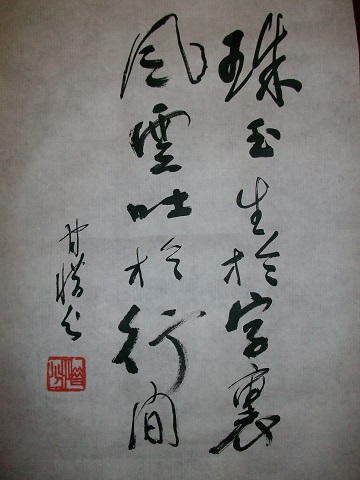 珠玉生於字裏
風雲吐於行间
甘惜分